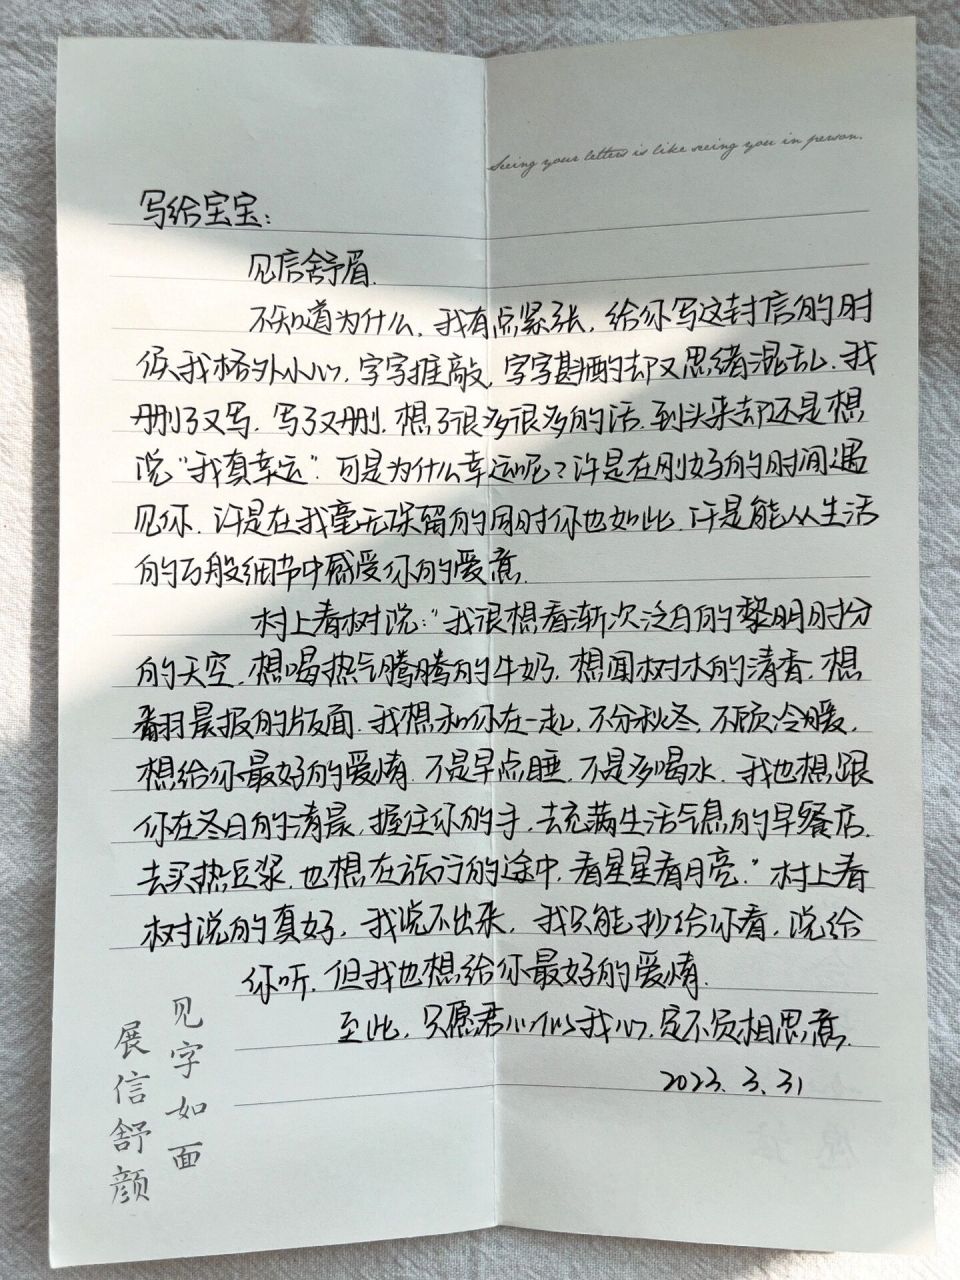 Seeing your letters is like seeing you in person.
写给宝宝：
见信舒眉.
不知道为什么，我有点紧张，给你写这封信的时
候我格外小心，字字推敲，字字斟酌却又思绪混乱.我
删了又写.写了又删，想了很多很多的话.到头来却还是想
说“我真幸运”.可是为什么幸运呢？许是在刚好的时间遇
见你.许是在我毫无保留的同时你也如此.许是能从生活
的万般细节中感受你的爱意.
村上春树说：“我很想看渐次泛白的黎明时分
的天空，想喝热气腾腾的牛奶，想闻树木的清香，想
翻晨报的版面.我想和你在一起，不分秋冬，不顾冷暖，
想给你最好的爱情.不是早点睡，不是多喝水，我也想跟
你在冬日的清晨，握住你的手，去充满生活气息的早餐店，
去买热豆浆.也想在旅行的途中，看星星看月亮.”村上春
树说的真好，我说不出来，我只能抄给你看，说给
你听.但我也想给你最好的爱情.
至此，只愿君心似我心，定不负相思意.
2023.3.31
见字如面
展信舒颜